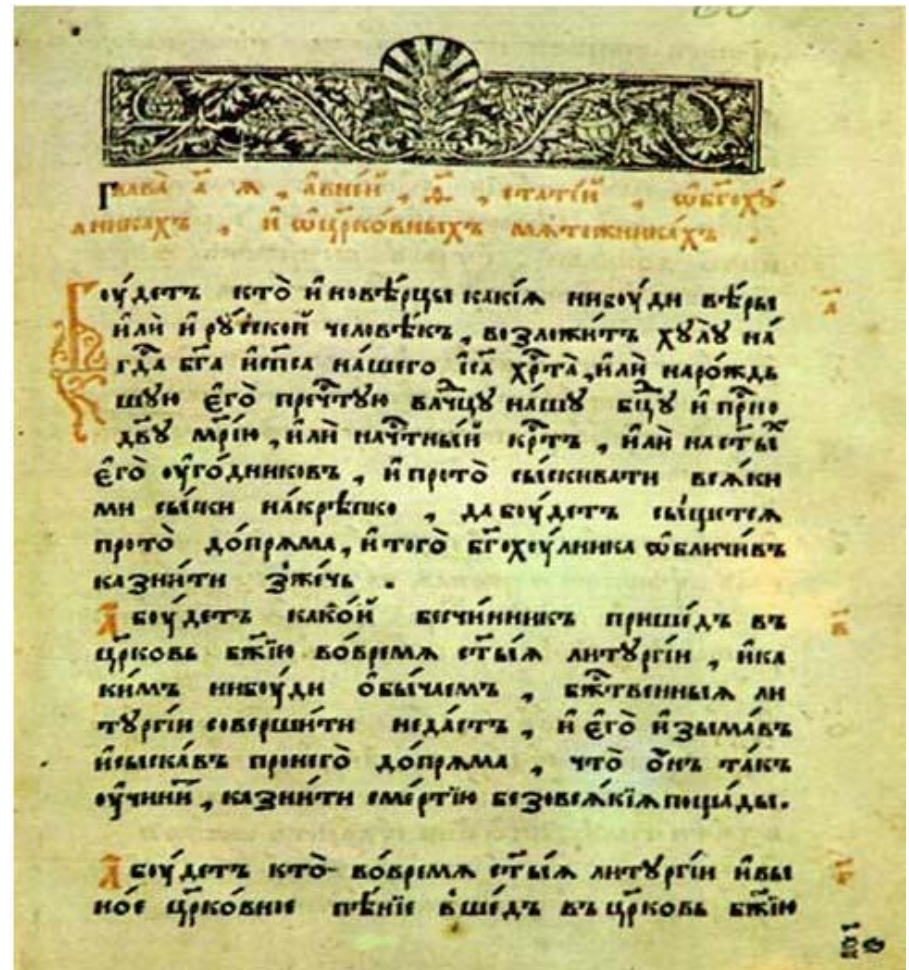 Глава̀ а҃ ѧ , а҆вне́й , ѳ҃ , стате́й , ѡ҆бг҃охꙋ́
лникахъ , и҆ ѡ҆цр҃ко́вныхъ мѧте́жникахъ .
Бꙋ́детъ кто̀ и҆новѣ́рцы какі́ѧ нибꙋ́ди вѣ́ры а҃
и҆лѝ и҆ рꙋ́сской человѣ́къ , возложи́тъ хꙋлꙋ̀ на
гдⷭ҇а бг҃а и҆сп҃са на́шего і҆с҃а хрⷭ҇та̀ , и҆лѝ наро́ждь
шꙋю є҆го̀ пречⷭ҇тꙋю влⷣчцꙋ на́шꙋ бцⷣꙋ и҆ прⷭ҇но
дв҃ꙋ мр҃і́ю , и҆лѝ начⷭ҇тны́й крⷭ҇тъ , и҆лѝ наст҃ы́хъ
є҆го̀ оу҆го́дниковъ , и҆ прото̀ сы́скивати всѧ́ки
ми сы́ски на́крѣпко , да бꙋ́детъ сы́щетсѧ
прото̀ до́прѧма , и҆ того̀ бг҃охꙋ́лника ѡ҆бличи́въ
казни́ти зже́чь .
А҆ бꙋ́детъ како́й бесчи́нникъ прише́дъ въ в҃
цр҃ковь бж҃їю во́времѧ ст҃ы́ѧ литꙋргі́и , и҆ка
ки́мъ нибꙋ́ди ѻ҆бы́чаемъ , бжⷭ҇твенныѧ ли
тꙋргі́и соверши́ти неда́стъ , и҆ є҆го̀ и҆зыма́въ
и҆сыска́въ пронего̀ до́прѧма , что̀ ѻ҆́нъ та́къ
оу҆чини́тъ , казни́ти сме́ртїю безовсѧ́кіѧ поща́ды .
А҆ бꙋ́детъ кто̀ во́времѧ ст҃ы́ѧ литꙋргі́и и҆вы г҃
но́е цр҃ко́вное пѣ́нїе вше́дъ въ цр҃ковь бж҃їю